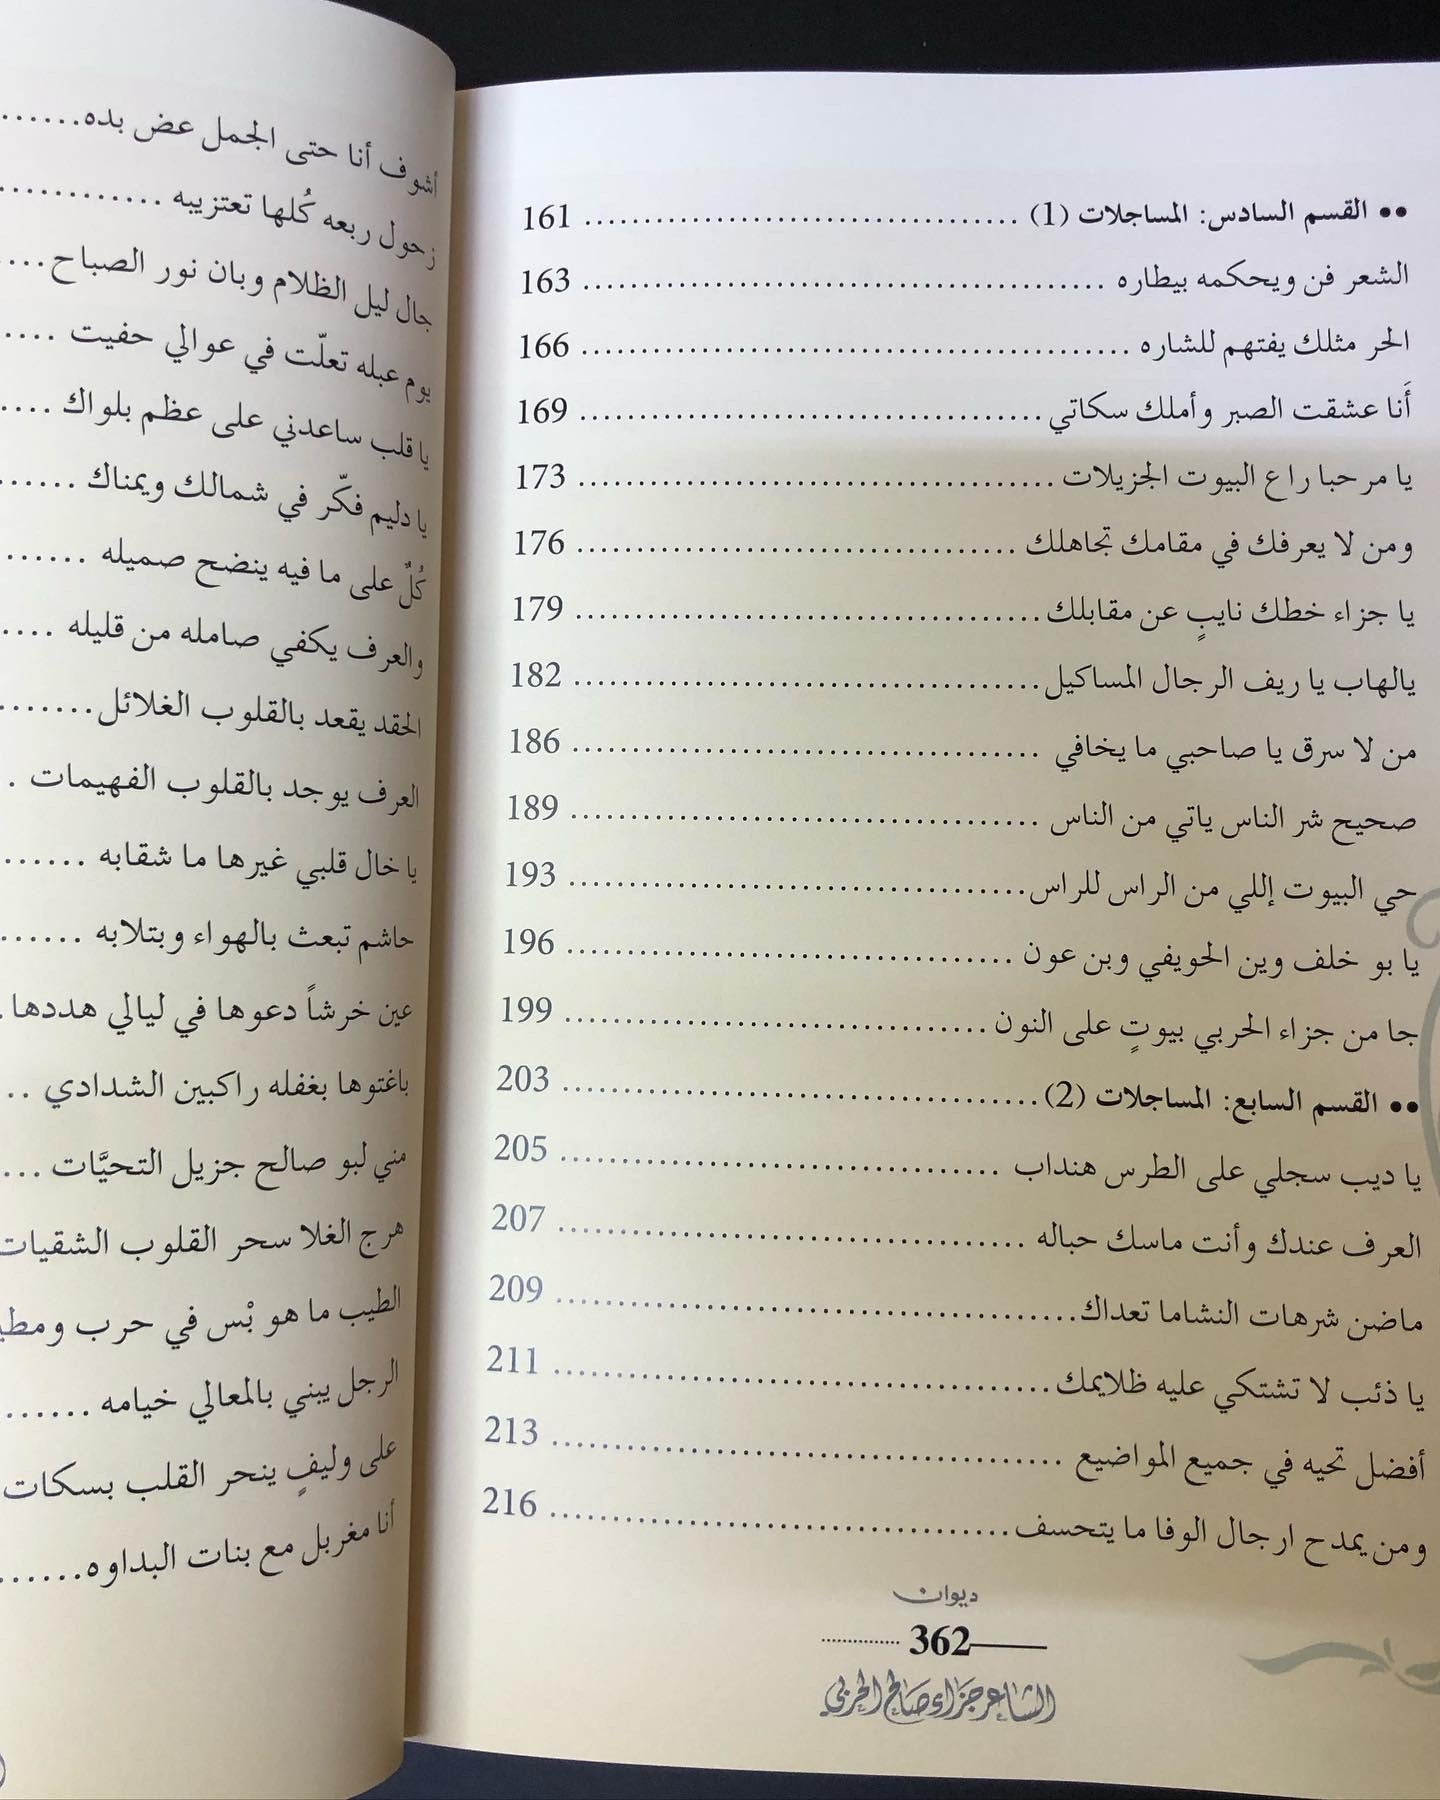 •• القسم السادس: المساجلات (1) ........ 161
الشعر فن ويحكمه بيطاره ........ 163
الحر مثلك يفتهم للشاره ........ 166
أَنا عشقت الصبر وأملك سكاتي ........ 169
يا مرحبا راع البيوت الجزيلات ........ 173
ومن لا يعرفك في مقامك تجاهلك ........ 176
يا جزاء خطك نايبٍ عن مقابلك ........ 179
يالهاب يا ريف الرجال المساكيل ........ 182
من لا سرق يا صاحبي ما يخافي ........ 186
صحيح شر الناس ياتي من الناس ........ 189
حي البيوت إللي من الراس للراس ........ 193
يا بو خلف وين الحويفي وبن عون ........ 196
جا من جزاء الحربي بيوتٍ على النون ........ 199
•• القسم السابع: المساجلات (2) ........ 203
يا ديب سجلي على الطرس هنداب ........ 205
العرف عندك وأنت ماسك حباله ........ 207
ماضن شرهات النشاما تعداك ........ 209
يا ذئب لا تشتكي عليه ظلايمك ........ 211
أفضل تحيه في جميع المواضيع ........ 213
ومن يمدح ارجال الوفا ما يتحسف ........ 216
ديوان
362
الشاعر جزاء صالح الحربي
أشوف أنا حتى الجمل عض بده ........
زحول ربعه كُلها تعتزيبه ........
جال ليل الظلام وبان نور الصباح ........
يوم عبله تعلّت في عوالي حفيت ........
يا قلب ساعدني على عظم بلواك ........
يا دليم فكّر في شمالك ويمناك ........
كُلٌ على ما فيه ينضح صميله ........
والعرف يكفي صامله من قليله ........
الحقد يقعد بالقلوب الغلائل ........
العرف يوجد بالقلوب الفهيمات .
يا خال قلبي غيرها ما شقابه ........
حاشم تبعث بالهواء وبتلابه ........
عين خرشاً دعوها في ليالي هددها .
باغتوها بغفله راكبين الشدادي ..
مني لبو صالح جزيل التحيَّات ...
هرج الغلا سحر القلوب الشقيات
الطيب ما هو بْس في حرب
الرجل يبني بالمعالي خيامه ........
على وليفٍ ينحر القلب بسكات
أنا مغربل مع بنات البداوه ........